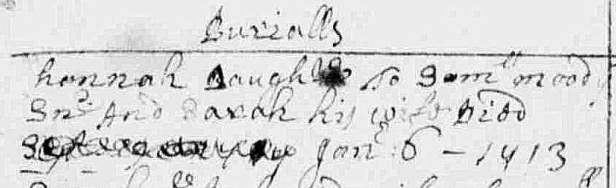 Burialls
hannah Daughter to Samll mood
Snr And Sarah his wife Died
Janr 6 - 1713